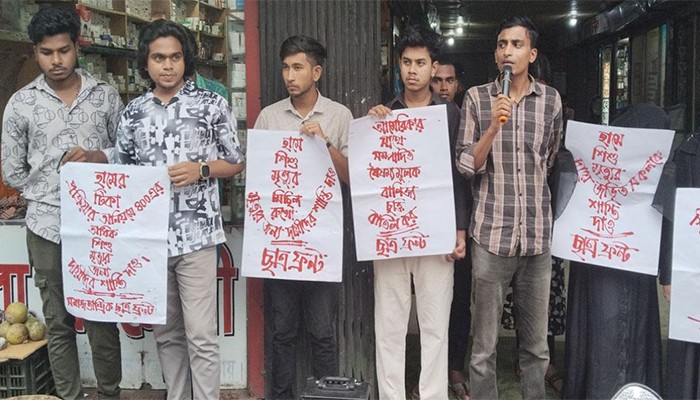 হামের
টিকা
অনিয়মে ৪০০ এর
অধিক
শিশু
মৃত্যুর
জন্য
দায়ীদের শাস্তি দাও।
সমাজতান্ত্রিক ছাত্র ফ্রন্ট
হামে
শিশু
মৃত্যুর
মিছিল
জন্য দায়ীদের শাস্তি দাও।
ছাত্র ফ্রন্ট
আমেরিকার
সাথে
সম্পাদিত
বৈষম্যমূলক
বাণিজ্য
চুক্তি
বাতিল কর
ছাত্র ফ্রন্ট
হামে
শিশু
মৃত্যুর
জড়িত সকলকে
শাস্তি
দাও
ছাত্র ফ্রন্ট